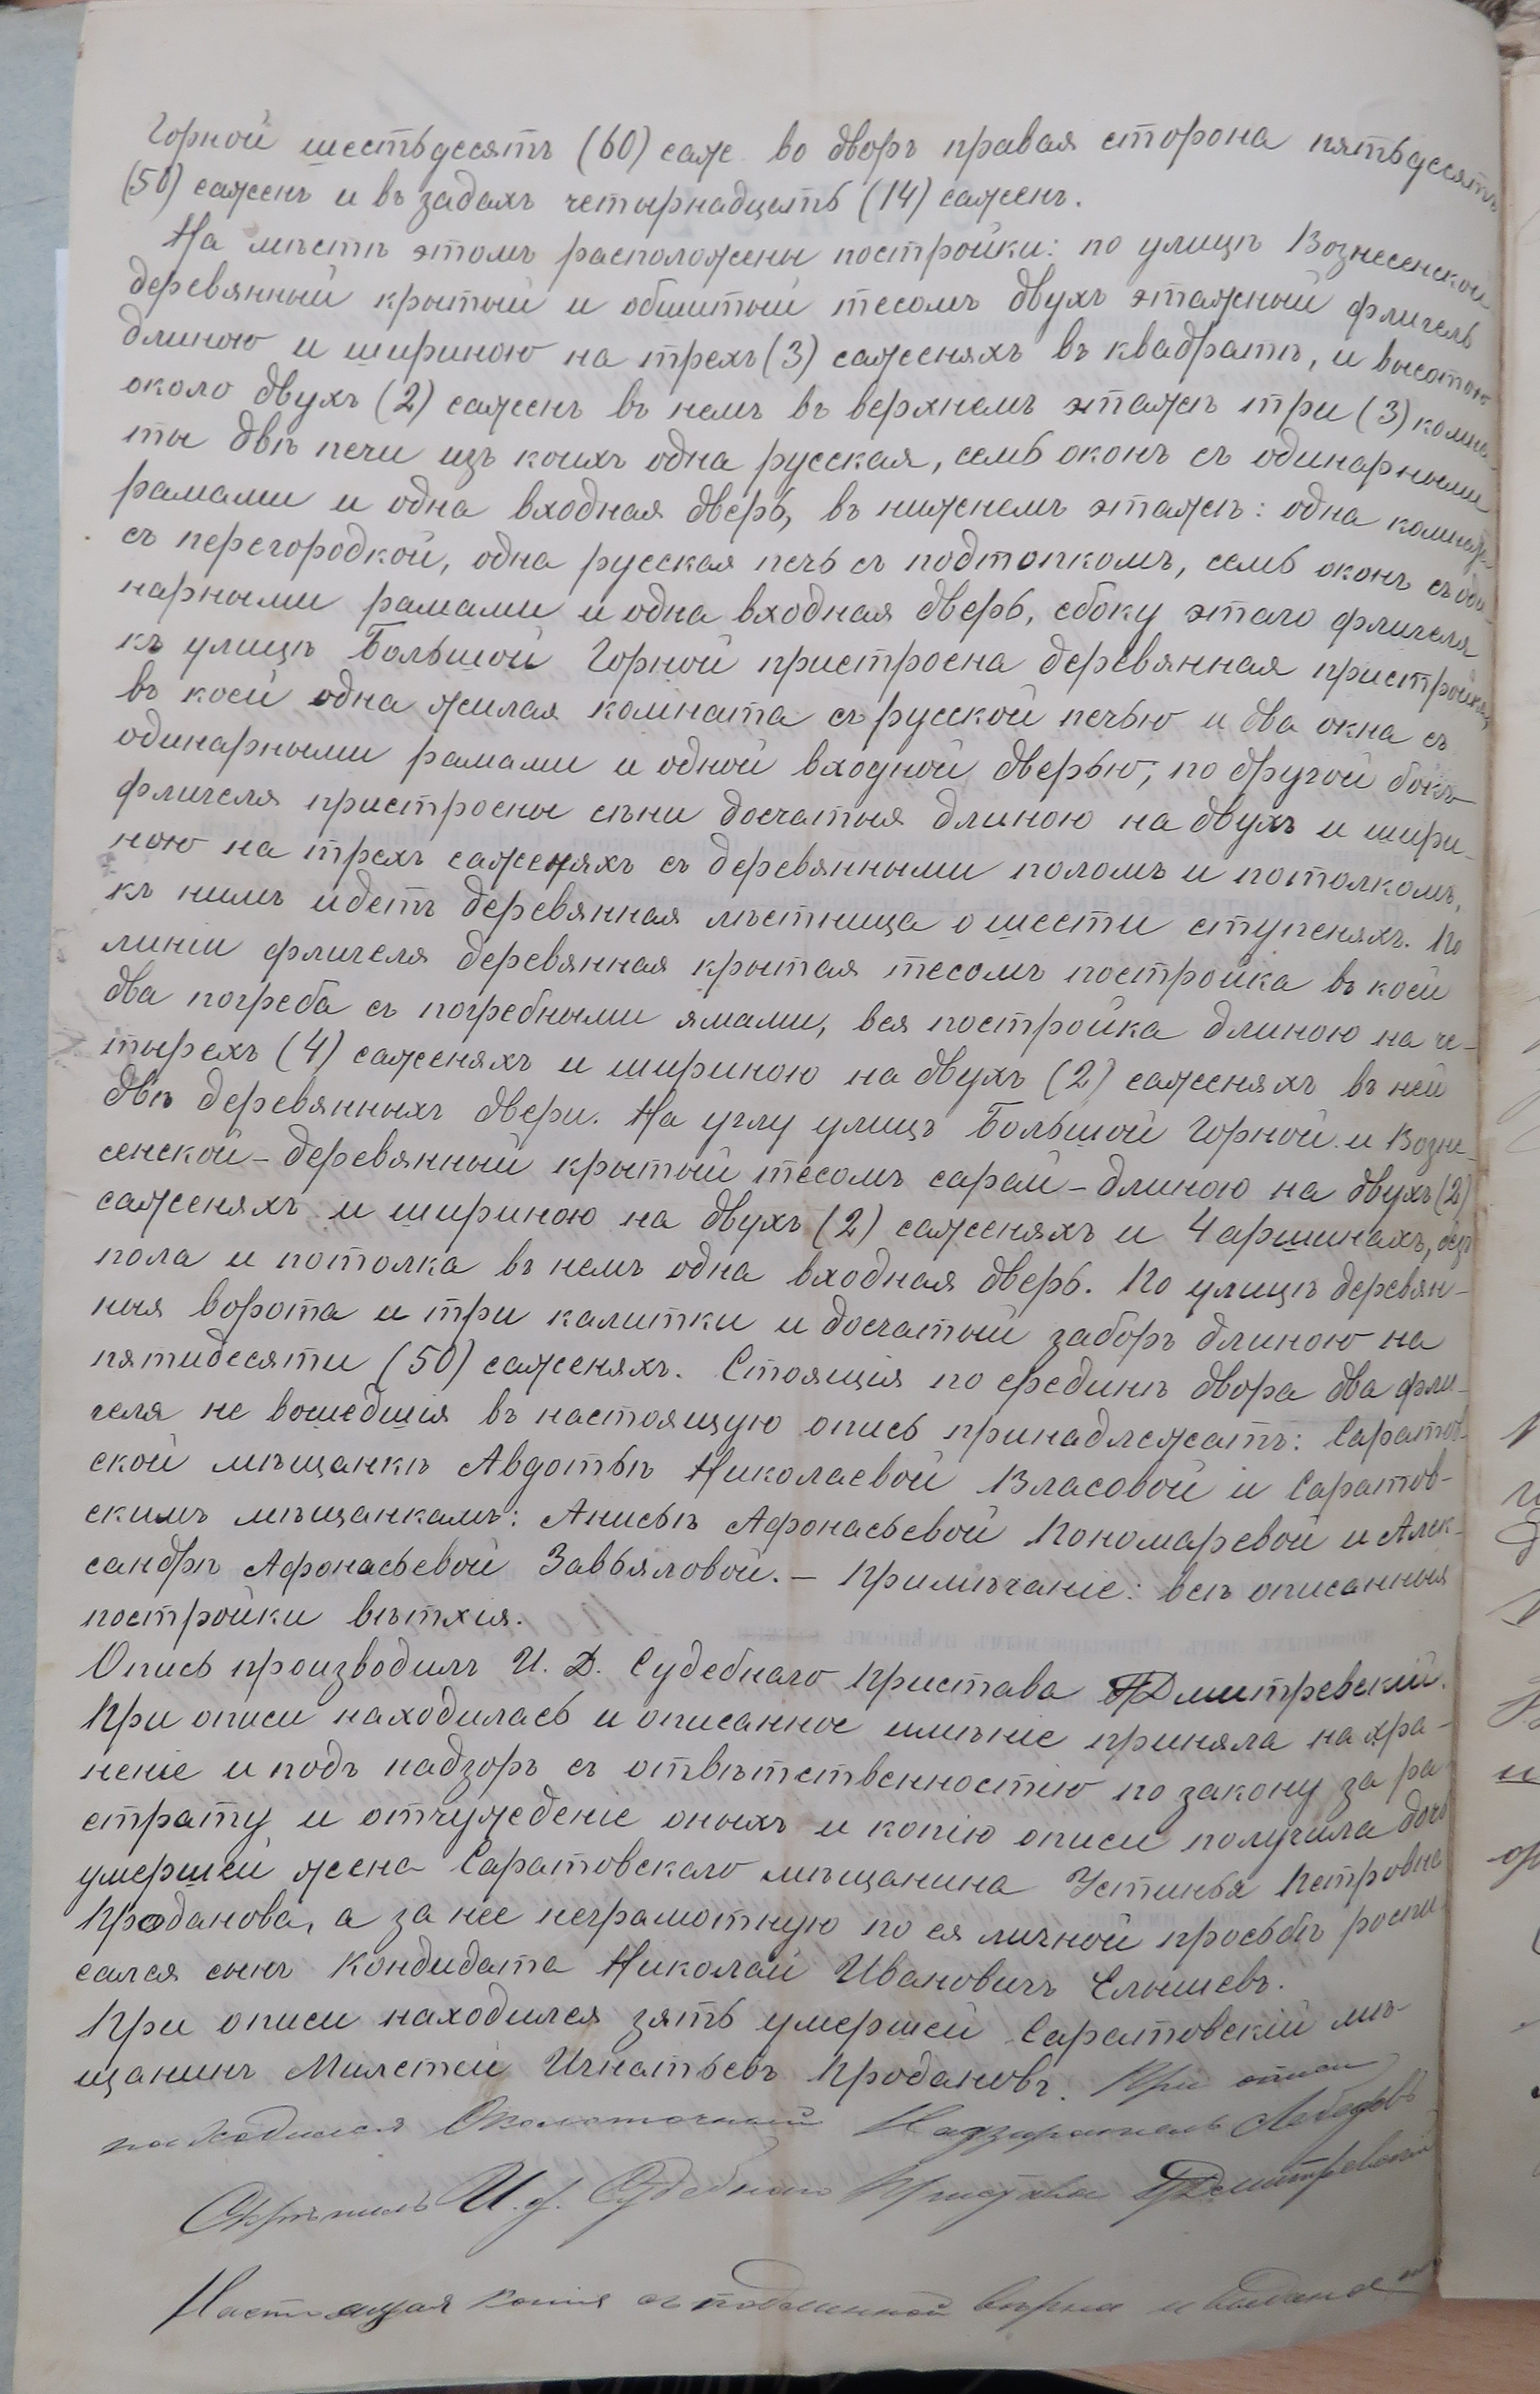 Горной шестьдесятъ (60) саж. во дворъ правая сторона пятьдесятъ
(50) саженъ и въ задахъ четырнадцать (14) саженъ.
На мѣстѣ этомъ расположены постройки: по улицѣ Вознесенской
деревянный крытый и обшитый тесомъ двухъ этажный флигель
длиною и шириною на трехъ (3) саженяхъ въ квадратѣ, и высотою
около двухъ (2) саженъ въ немъ въ верхнемъ этажѣ три (3) комна-
ты двѣ печи изъ коихъ одна русская, семь оконъ съ одинарными
рамами и одна входная дверь, въ нижнемъ этажѣ: одна комната
съ перегородкой, одна русская печь съ подтопкомъ, семь оконъ съ оди-
нарными рамами и одна входная дверь, сбоку этаго флигеля
къ улицѣ Большой Горной пристроена деревянная пристройка,
въ коей одна жилая комната съ русской печью и два окна съ
одинарными рамами и одной входной дверью; по другой бокъ
флигеля пристроены сѣни досчатыя длиною на двухъ и шири-
ною на трехъ саженяхъ съ деревянными поломъ и потолкомъ,
къ нимъ идетъ деревянная лѣстница о шести ступеняхъ. По
линіи флигеля деревянная крытая тесомъ постройка въ коей
два погреба съ погребными ямами, вся постройка длиною на че-
тырехъ (4) саженяхъ и шириною на двухъ (2) саженяхъ въ ней
двѣ деревянныхъ двери. На углу улицъ Большой Горной и Возне-
сенской - деревянный крытый тесомъ сарай - длиною на двухъ (2)
саженяхъ и шириною на двухъ (2) саженяхъ и 4 аршинахъ, безъ
пола и потолка въ немъ одна входная дверь. По улицѣ деревян-
ныя ворота и три калитки и досчатый заборъ длиною на
пятидесяти (50) саженяхъ. Стоящія по срединѣ двора два фли-
геля не вошедшія въ настоящую опись принадлежатъ: Саратов-
ской мѣщанкѣ Авдотьѣ Николаевой Власовой и Саратов-
скимъ мѣщанкамъ: Анисьѣ Афонасьевой Пономаревой и Алек-
сандрѣ Афонасьевой Завьяловой. - Примѣчаніе: всѣ описанныя
постройки вѣтхія.
Опись производилъ И. Д. Судебнаго Пристава Дмитревскій.
При описи находилась и описанное имѣніе приняла на хра-
неніе и подъ надзоръ съ отвѣтственностію по закону за ра-
страту и отчужденіе оныхъ и копію описи получила дочь
умершей жена Саратовскаго мѣщанина Устинья Петровна
Проданова, а за нее неграмотную по ея личной просьбѣ роспи-
сался сынъ Кондидата Николай Ивановичъ Елышевъ.
При описи находился зять умершей Саратовскій мѣ-
щанинъ Милетей Игнатьевъ Продановъ. При описи
находился Околоточный Надзиратель Лебедевъ
Скрѣпилъ И. д. Судебнаго Пристава Дмитревскій
Настоящая копія съ подлинной вѣрна и выдана